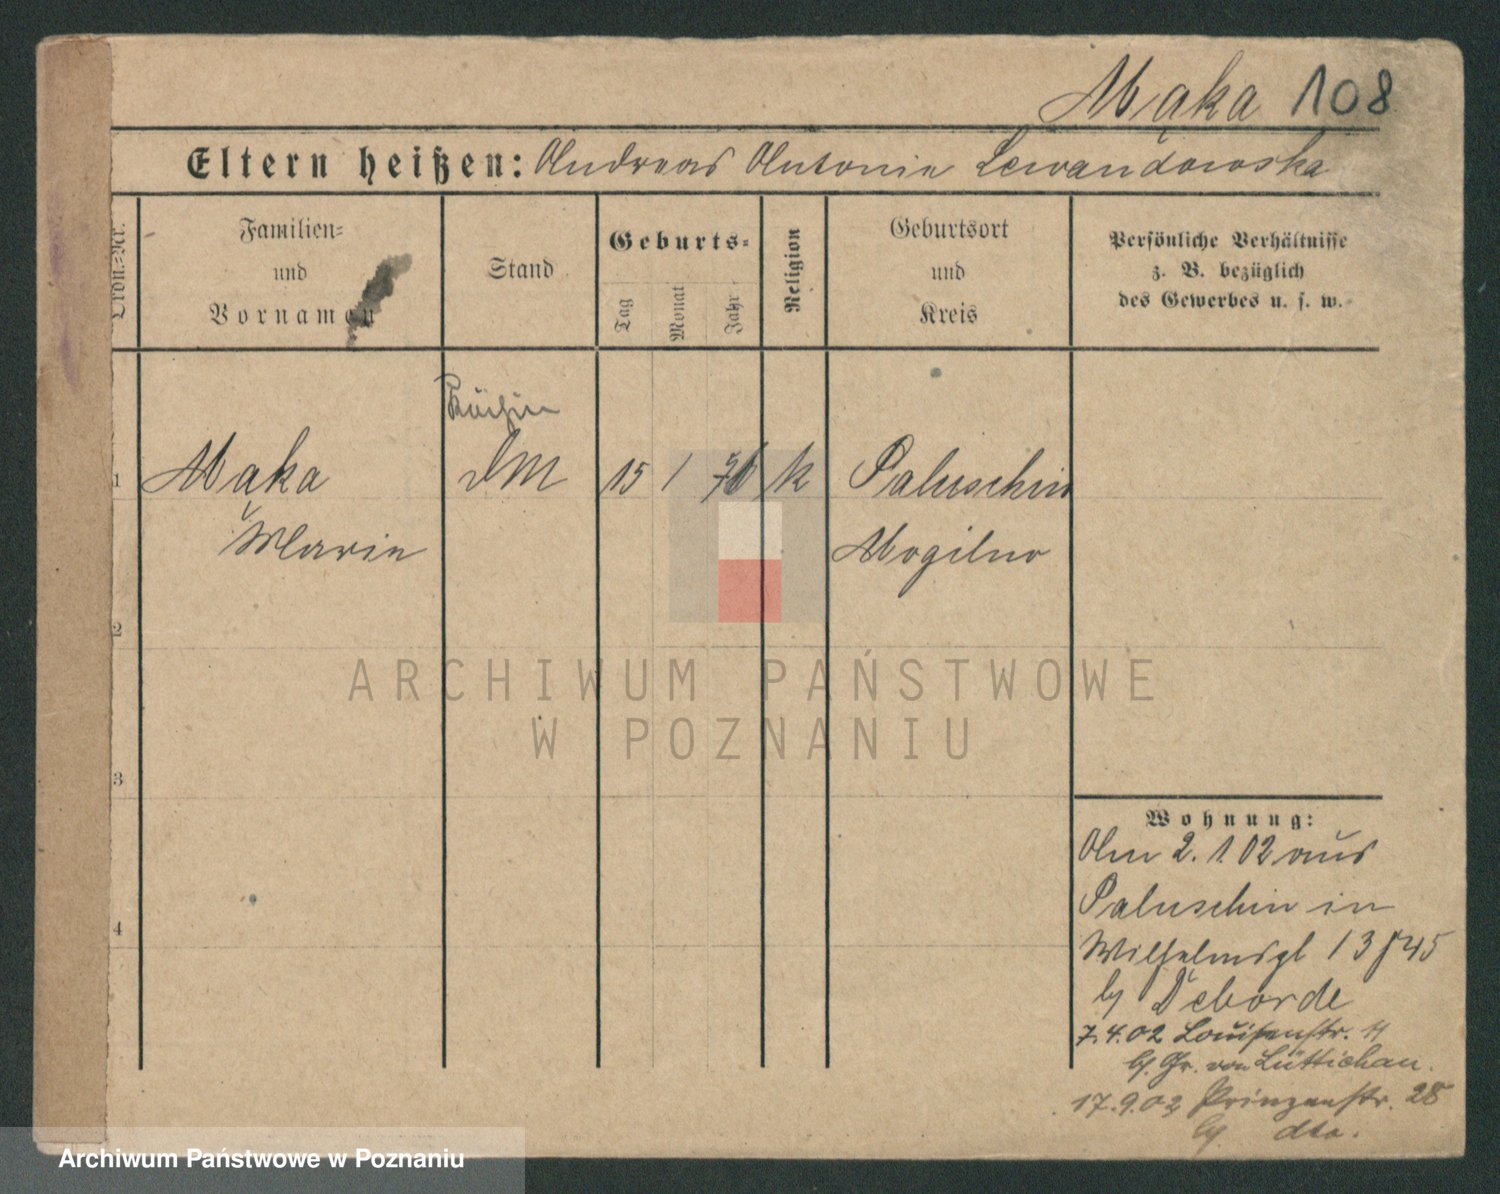 Mąka 108
Eltern heißen: Andreas Antonie Lewandowska
Ordn.=Nr.
Familien=
und
Vornamen
Stand
Geburts=
Tag
Monat
Jahr
Religion
Geburtsort
und
Kreis
Persönliche Verhältnisse
z. B. bezüglich
des Gewerbes u. s. w.
Köchin
1 Mąka DM 15 1 76 k Paluschin
Marie Mogilno
2
ARCHIWUM PAŃSTWOWE
W POZNANIU
3
Wohnung:
Am 2. 1 02 aus
Paluschin in
4
Wilhelmspl 13
b/ Deborde
7.4.02 Louisenstr. 11
b/. Gr. von Lüttichau.
17.9.02 Prinzenstr. 28
b/ dto.
Archiwum Państwowe w Poznaniu